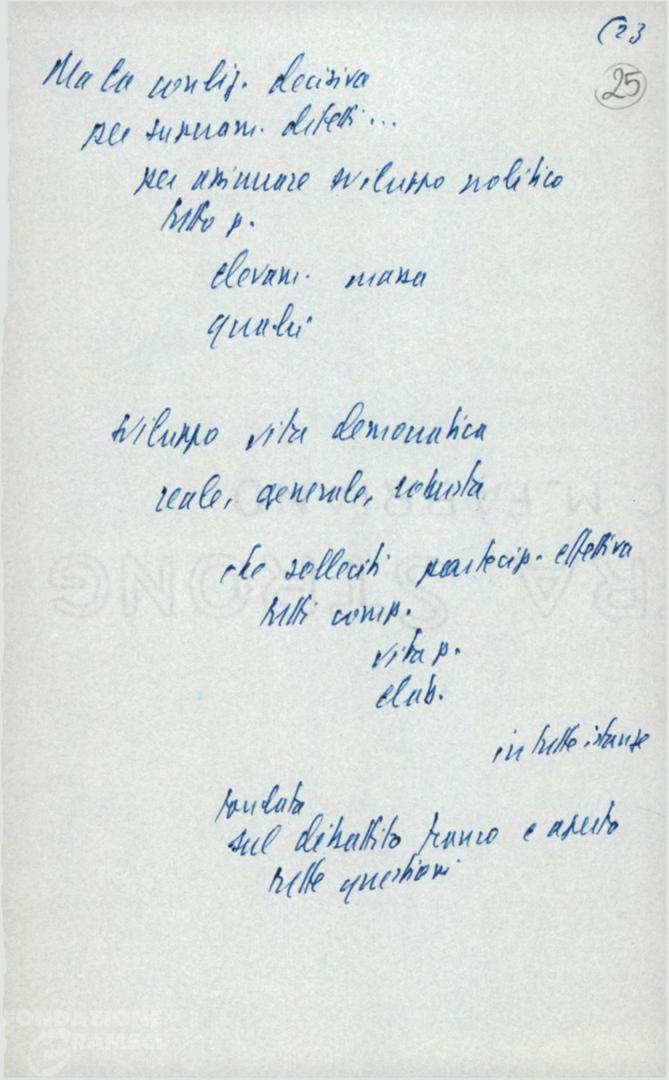 (23
25
Ma la condiz. decisiva
per superam. difetti...
per assicurare sviluppo politico
tutto p.
elevam. massa
quadri
sviluppo vita democratica
reale, generale, robusta
che solleciti partecip. effettiva
tutti comp.
vita p.
elab.
in tutte istanze
fondata
sul dibattito franco e aperto
tutte questioni
C.M. FABRIANO
RA STRONG
FONDAZIONE
GRAMSCI